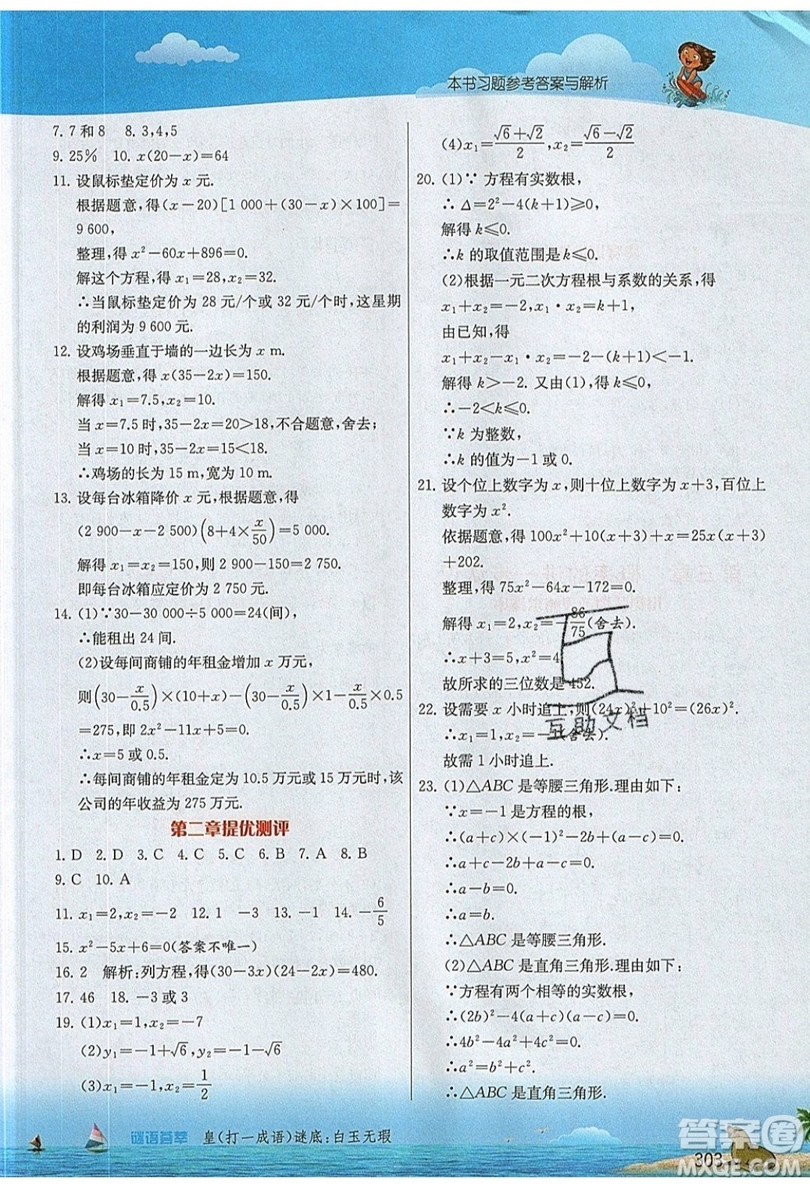 本书习题参考答案与解析
7. 7 和 8　8. 3,4,5
9. 25%　10. x(20-x)=64
11. 设鼠标垫定价为 x 元.
根据题意,得(x-20)[1 000+(30-x)×100]=
9 600,
整理,得 x²-60x+896=0.
解这个方程,得 x₁=28,x₂=32.
∴当鼠标垫定价为 28 元/个或 32 元/个时,这星期
的利润为 9 600 元.
12. 设鸡场垂直于墙的一边长为 x m.
根据题意,得 x(35-2x)=150.
解得 x₁=7.5,x₂=10.
当 x=7.5 时,35-2x=20>18,不合题意,舍去;
当 x=10 时,35-2x=15<18.
∴鸡场的长为 15 m,宽为 10 m.
13. 设每台冰箱降价 x 元,根据题意,得
(2 900-x-2 500)(8+4×x/50)=5 000.
解得 x₁=x₂=150,则 2 900-150=2 750.
即每台冰箱应定价为 2 750 元.
14. (1)∵30-30 000÷5 000=24(间),
∴能租出 24 间.
(2)设每间商铺的年租金增加 x 万元,
则(30-x/0.5)×(10+x)-(30-x/0.5)×1-x/0.5×0.5
=275,即 2x²-11x+5=0.
∴x=5 或 0.5.
∴每间商铺的年租金定为 10.5 万元或 15 万元时,该
公司的年收益为 275 万元.
第二章提优测评
1. D　2. D　3. C　4. C　5. C　6. B　7. A　8. B
9. C　10. A
11. x₁=2,x₂=-2　12. 1　-3　13. -1　14. -6/5
15. x²-5x+6=0(答案不唯一)
16. 2　解析:列方程,得(30-3x)(24-2x)=480.
17. 46　18. -3 或 3
19. (1)x₁=1,x₂=-7
(2)y₁=-1+√6,y₂=-1-√6
(3)x₁=-3,x₂=1/2
(4)x₁=(√6+√2)/2,x₂=(√6-√2)/2
20. (1)∵ 方程有实数根,
∴ Δ=2²-4(k+1)≥0.
解得 k≤0.
∴k 的取值范围是 k≤0.
(2)根据一元二次方程根与系数的关系,得
x₁+x₂=-2,x₁·x₂=k+1,
由已知,得
x₁+x₂-x₁·x₂=-2-(k+1)<-1.
解得 k>-2. 又由(1),得 k≤0,
∴-2<k≤0.
∵k 为整数,
∴k 的值为-1 或 0.
21. 设个位上数字为 x,则十位上数字为 x+3,百位上
数字为 x².
依据题意,得 100x²+10(x+3)+x=25x(x+3)
+202.
整理,得 75x²-64x-172=0.
解得 x₁=2,x₂=-86/75(舍去).
∴x+3=5,x²=4
故所求的三位数是 452.
22. 设需要 x 小时追上,则(24x)²+10²=(26x)².
∴x₁=1,x₂=-1(舍去).
故需 1 小时追上.
23. (1)△ABC 是等腰三角形.理由如下:
∵x=-1 是方程的根,
∴(a+c)×(-1)²-2b+(a-c)=0.
∴a+c-2b+a-c=0.
∴a-b=0.
∴a=b.
∴△ABC 是等腰三角形.
(2)△ABC 是直角三角形.理由如下:
∵方程有两个相等的实数根,
∴(2b)²-4(a+c)(a-c)=0.
∴4b²-4a²+4c²=0.
∴a²=b²+c².
∴△ABC 是直角三角形.
互助文档
谜语荟萃　皇(打一成语)谜底:白玉无瑕
303
答案圈
MXQE.COM